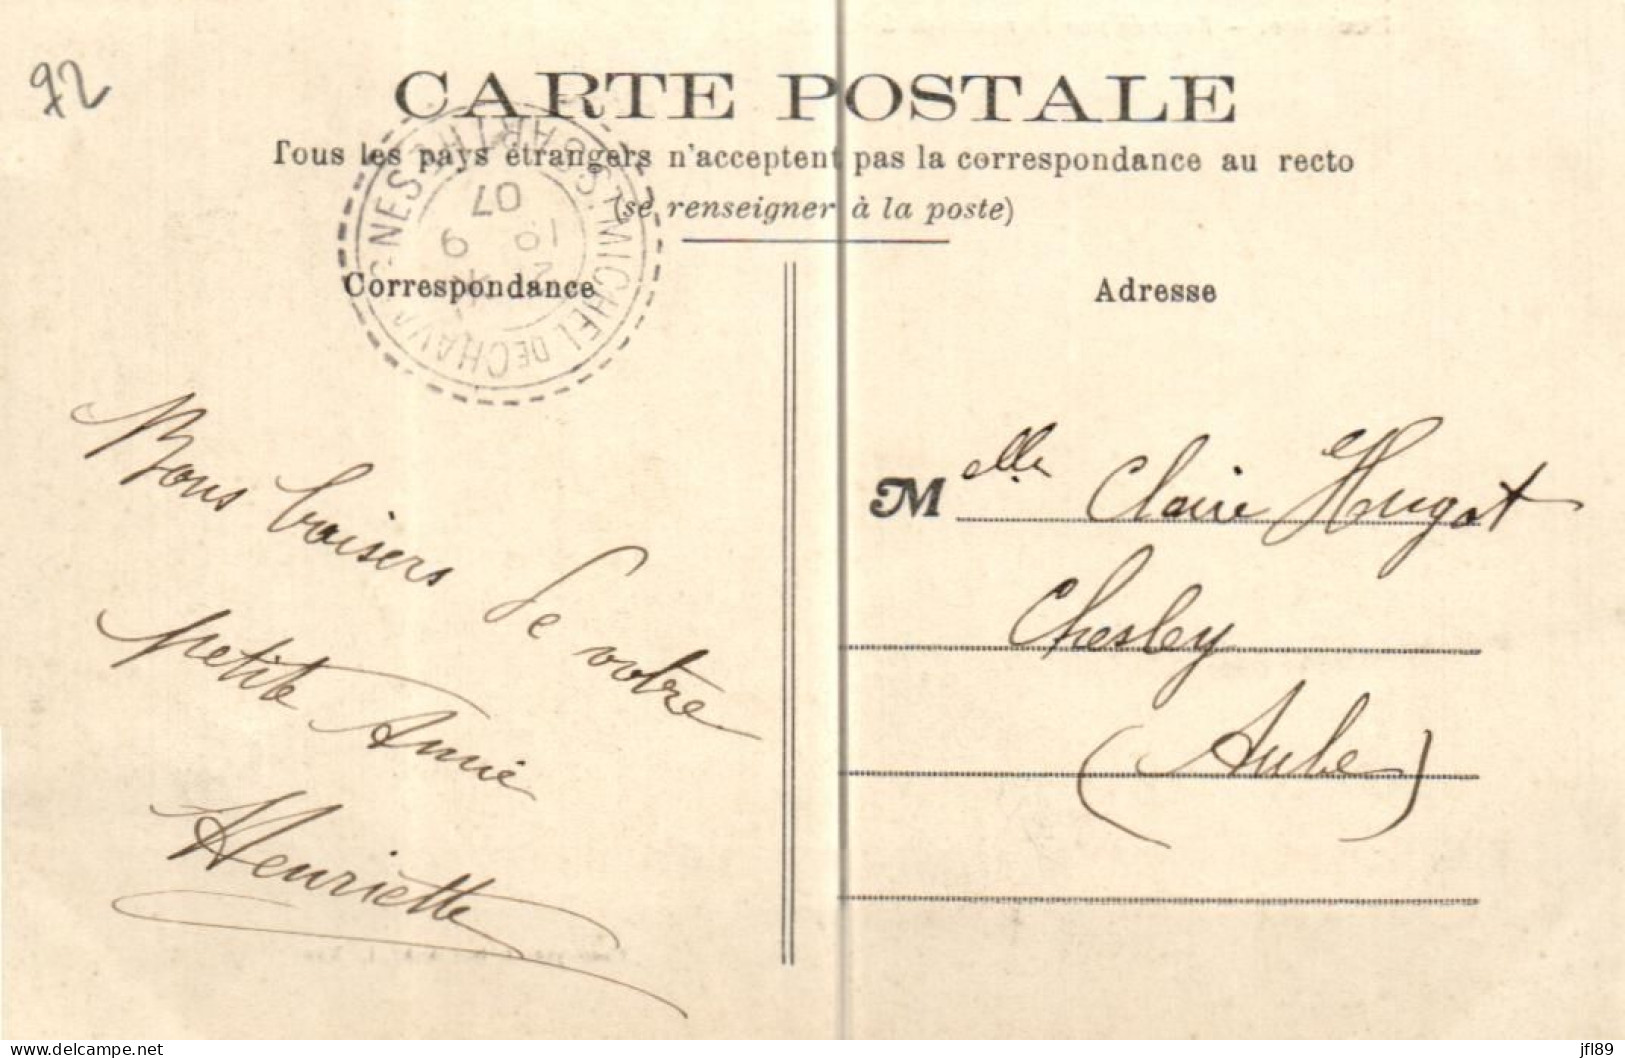 92
CARTE POSTALE
Tous les pays étrangers n'acceptent pas la correspondance au recto
(se renseigner à la poste)
Correspondance
Adresse
ST MICHEL DE CHAVAIGNES SARTHE
19
2 9
07
Bons baisers de votre
petite Amie
Henriette
Melle Claire Hugot
Chesley
(Aube)
jfl89
delcampe.net